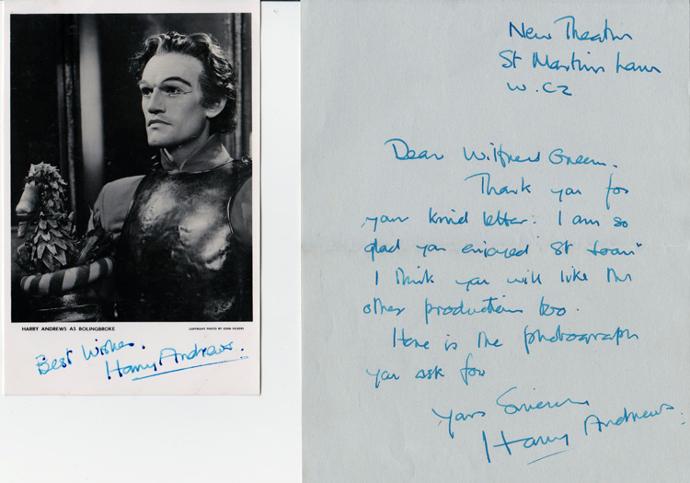 HARRY ANDREWS AS BOLINGBROKE
COPYRIGHT PHOTO BY JOHN VICKERS
Best Wishes.
Harry Andrews.
New Theatre
St Martins Lane
W.C2
Dear Wilfred Green.
Thank you for
your kind letter. I am so
glad you enjoyed "St Joan"
I think you will like the
other productions too.
Here is the photograph
you ask for
Yours Sincerely
Harry Andrews.